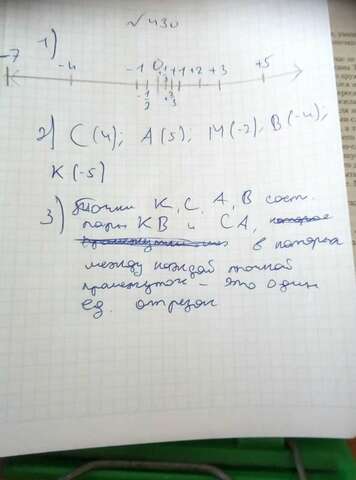 №430
1)
-7 -4 -1 0 +1 +2 +3 +5
-1/2
2) C(4); A(5); M(-2); B(-4);
K(-5)
3) Точки K, C, A, B сост.
пары KB и CA,
в которых
между каждой точкой
промежуток - это один
ед. отрезок